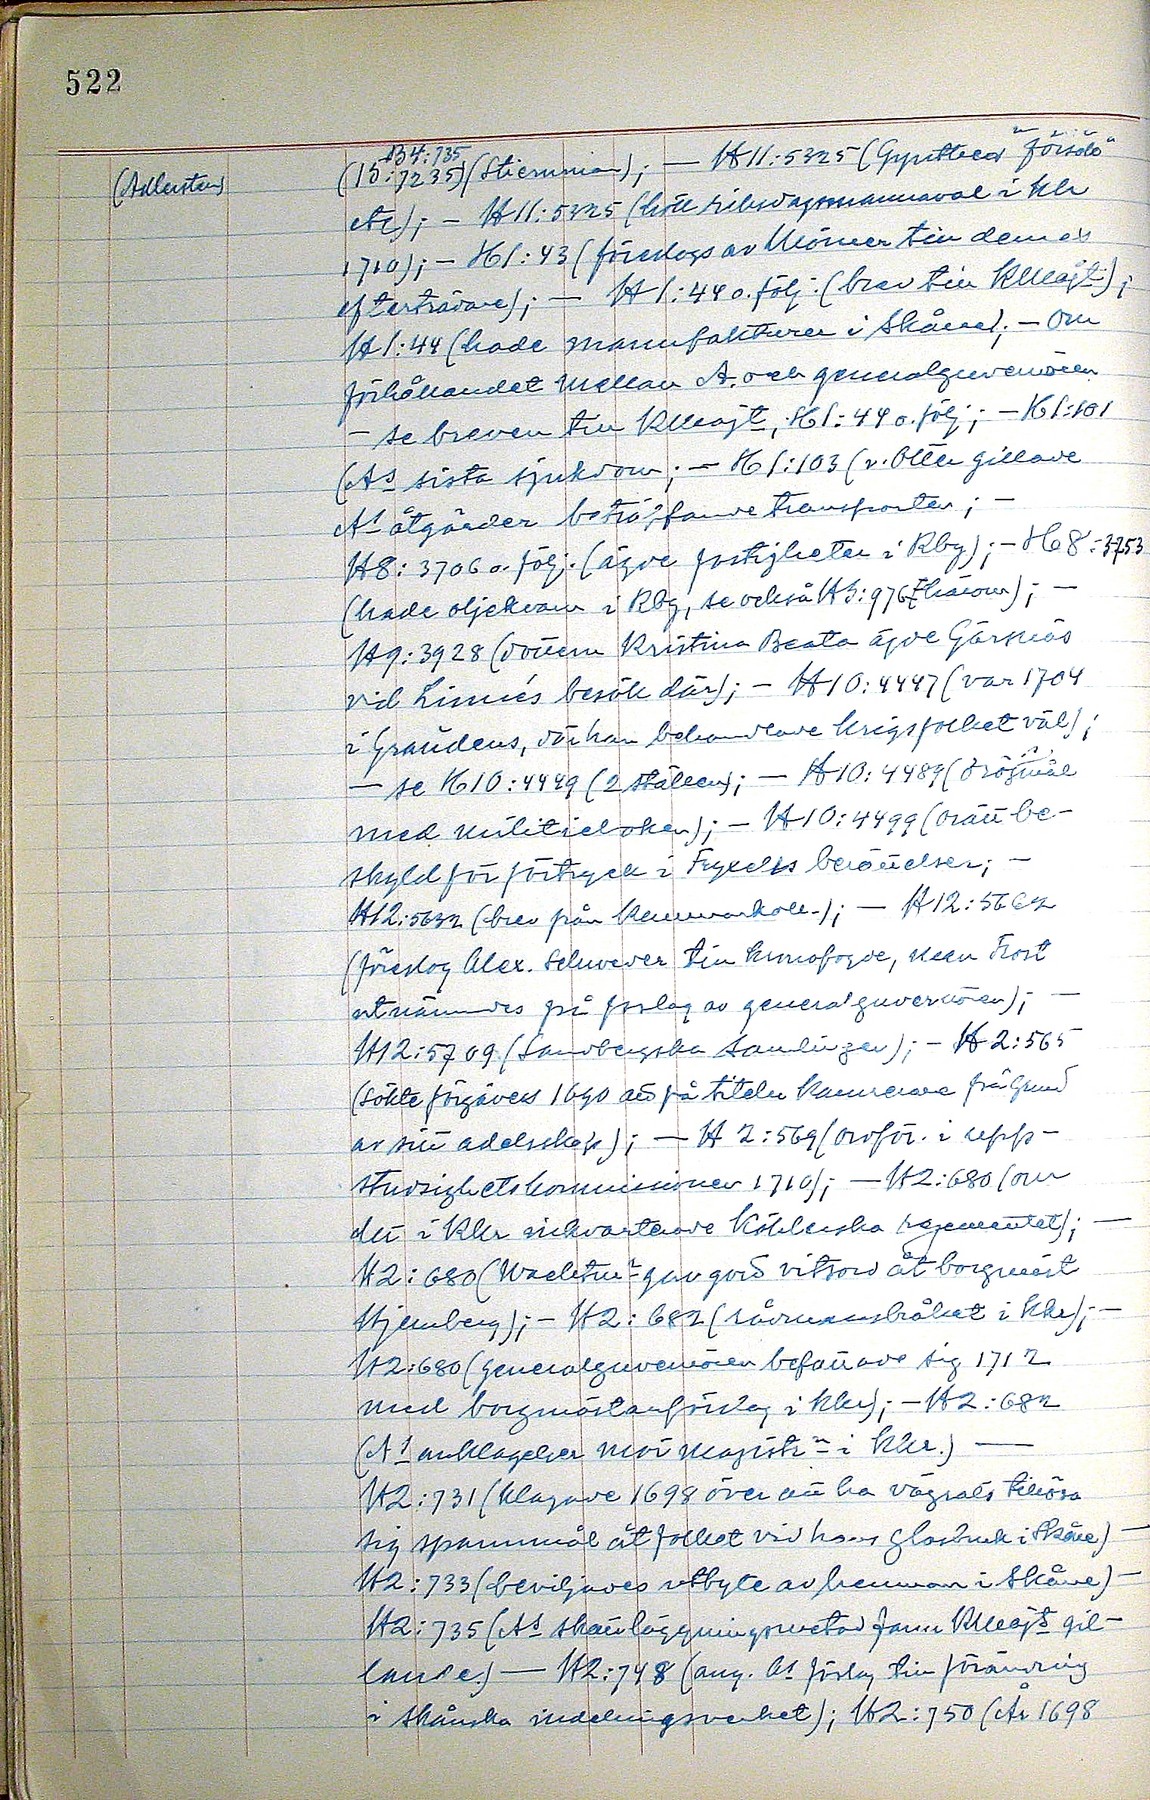 522
B4:735
(Adlersten) (15:7235) (Stiernman); — H11:5325 (Gyntheas "försök"
etc); — H11:5325 (höll riksdagsmannaval i Khr
1710); — H1:43 (föreslogs av Mörner till dennes
efterträdare); — H1:44 o. följ. (brev till KMajt);
H1:44 (hade manufakturer i Skåne); — om
förhållandet mellan A. och generalguvernören
— se breven till KMajt, H1:44 o. följ; — H1:101
(As sista sjukdom; — H1:103 (v. Otter gillade
As åtgärder beträffande transporter; —
H8:3706 o. följ. (ägde fastigheter i Kby); — H8:3753
(hade oljekvarn i Kby, se också H3:976 härom); —
H9:3928 (dottern Kristina Beata ägde Gärsnäs
vid Linnés besök där); — H10:4447 (var 1704
i Graudens, där han behandlade krigsfolket väl);
— se H10:4449 (2 ställen); — H10:4489 (drögsmål
med militieboken); — H10:4499 (orätt be-
skylld för förtryck i Fryxells berättelser; —
H12:5632 (brev från Kammarkoll.); — H12:5662
(föreslog Alex. Schwever till kronofogde, men Frost
utnämndes på förslag av generalguvernören); —
H12:5709 (Sandbergska Samlingen); — H2:565
(sökte förgäves 1690 att få titeln kamrerare på grund
av sitt adelskap); — H2:569 (ordför. i upp-
studsighetskommissionen 1710); — H2:680 (om
det i Khr inkvarterade Köhlerska regementet); —
H2:680 (Wachtm:r gav god vitsord åt borgmäst
Stjernberg); — H2:682 (rådmansbråket i Khr); —
H2:680 (Generalguvernören befattade sig 1712
med borgmästarförslag i Khr); — H2:682
(As anklagelser mot magistrn i Khr.) —
H2:731 (klagade 1698 över att ha vägrats tillösa
sig spannmål åt folket vid hans glasbruk i Skåne) —
H2:733 (beviljades utbyte av hemman i Skåne) —
H2:735 (As skattläggningsmetod fann KMajts gil-
lande) — H2:748 (ang. As förslag till förändring
i skånska indelningsverket); H2:750 (År 1698